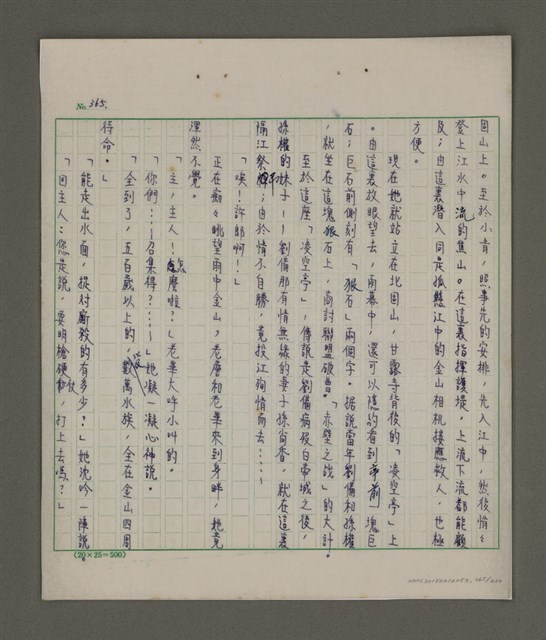 No. 365.
固山上。至於小青，照事先的安排，先入江中，然後悄々
登上江水中流的焦山。在這裏指揮護堤，上流下流都能顧
及；由這裏潛入同是孤懸江中的金山相机接應救人，也極
方便。
現在她就站立在北固山，甘露寺背後的「凌空亭」上
。由這裏放眼望去，雨幕中，還可以隱約看到寺前一塊巨
石；巨石前側刻有「狠石」兩個字。据說當年劉備和孫權
，就坐在這塊狠石上，商討聯盟破曹，「赤壁之战」的大計
至於這座「凌空亭」，傳說是劉備病歿白帝城之後，
孫權的妹子——劉備那有情無緣的妻子孫尚香，就在這裏
隔江祭拜；由於情不自勝，竟投江殉情而去……
「唉！許郎啊！」
正在痴々眺望雨中金山，老龐和老華來到身畔，她竟
渾然不覺。
「主，主人！怎麼啦？」老華大呼小叫的。
「你們……召集得？……」她凝一凝心神說。
「全到了，五百歲以上的，數萬水族，全在金山四周
待命。」
「能走出水面，捉对廝殺的有多少？」她沈吟一陣說。
「回主人：您是說，要明槍硬仗，打上去嗎？」
(20×25=500)